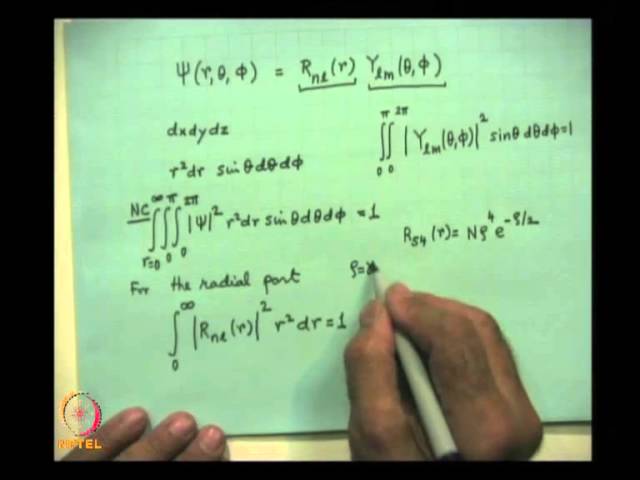 Ψ(r,θ,ϕ) = Rnl(r) Ylm(θ,ϕ)
dxdydz
r²dr sinθdθdϕ
∫₀^π∫₀^2π |Ylm(θ,ϕ)|² sinθdθdϕ=1
NC ∫r=0^∞∫₀^π∫₀^2π |Ψ|² r²dr sinθdθdϕ =1
R54(r)= Nρ⁴ e^-ρ/2
For the radial part
ρ=
∫₀^∞ |Rnl(r)|² r²dr=1
NPTEL